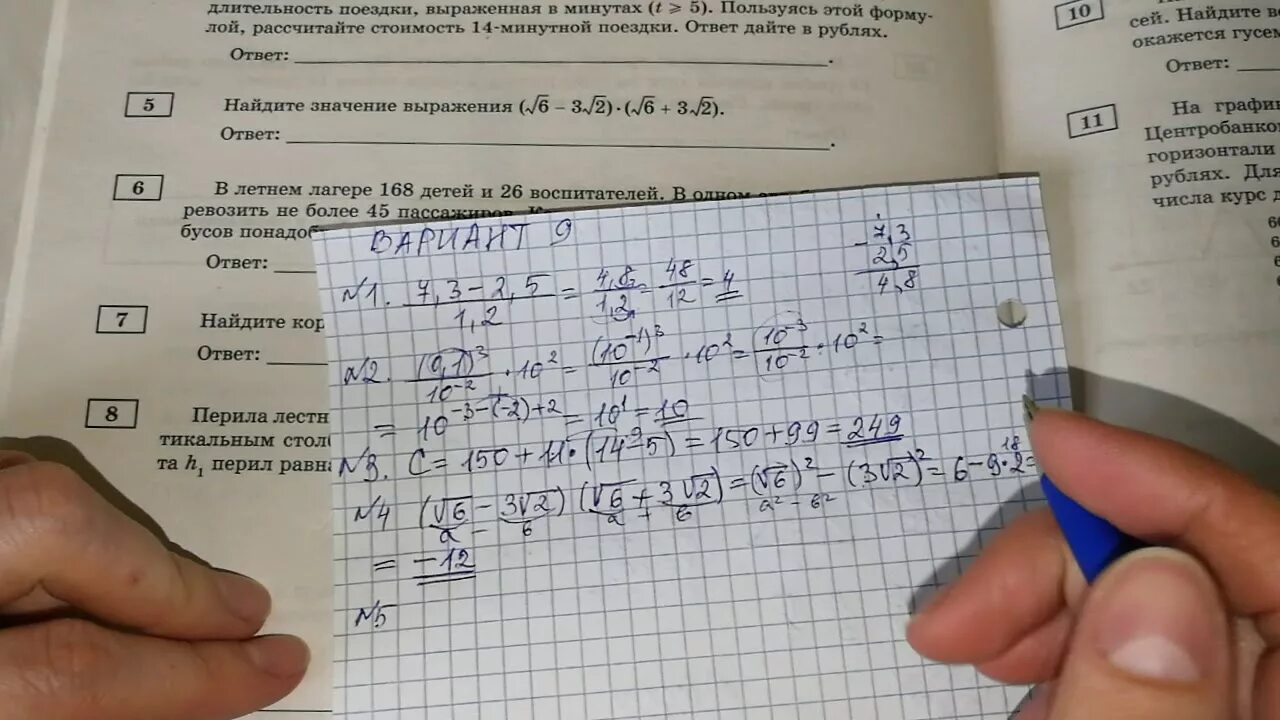 длительность поездки, выраженная в минутах (t ⩾ 5). Пользуясь этой форму-
лой, рассчитайте стоимость 14-минутной поездки. Ответ дайте в рублях.
Ответ:
5 Найдите значение выражения (√6 − 3√2)·(√6 + 3√2).
Ответ:
6 В летнем лагере 168 детей и 26 воспитателей. В одном
ревозить не более 45 пассажиров.
бусов понадоб
Ответ:
7 Найдите кор
Ответ:
8 Перила лестн
тикальным столб
та h₁ перил равна
10
сей. Найдите в
окажется гусем
Ответ:
11 На график
Центробанко
горизонтали
рублях. Для
числа курс д
ВАРИАНТ 9
№1. (7,3 − 2,5)/1,2 = 4,8/1,2 = 48/12 = 4
7,3
− 2,5
4,8
№2. (0,1)³/10⁻² · 10² = (10⁻¹)³/10⁻² · 10² = 10⁻³/10⁻² · 10² =
= 10⁻³⁻⁽⁻²⁾⁺² = 10¹ = 10
№3. C = 150 + 11·(14 − 5) = 150 + 99 = 249
9
№4 (√6 − 3√2)(√6 + 3√2) = (√6)² − (3√2)² = 6 − 9·2 =
a − b a + b a² − b² 18
= −12
№5